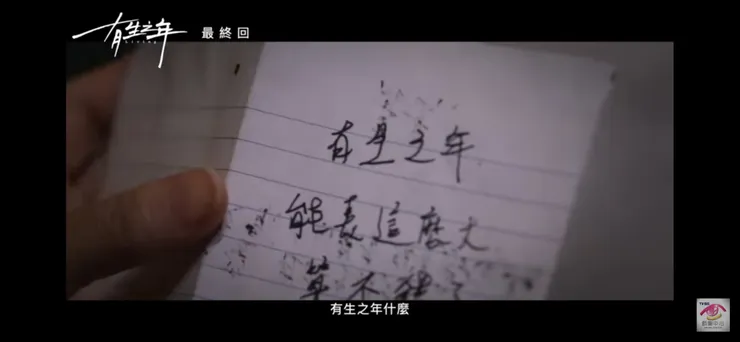 有生之年 最終回
Living
有生之年
能長這麼大
算不
有生之年什麼